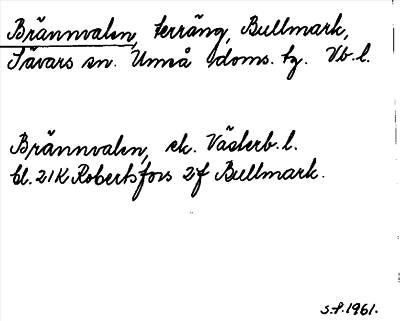 Brännvalen, terräng, Bullmark,
Sävars sn. Umeå doms. tg. Vb. l.
Brännvalen, ek. Västerb. l.
bl. 21K Robertsfors 2f Bullmark.
s.f. 1961.